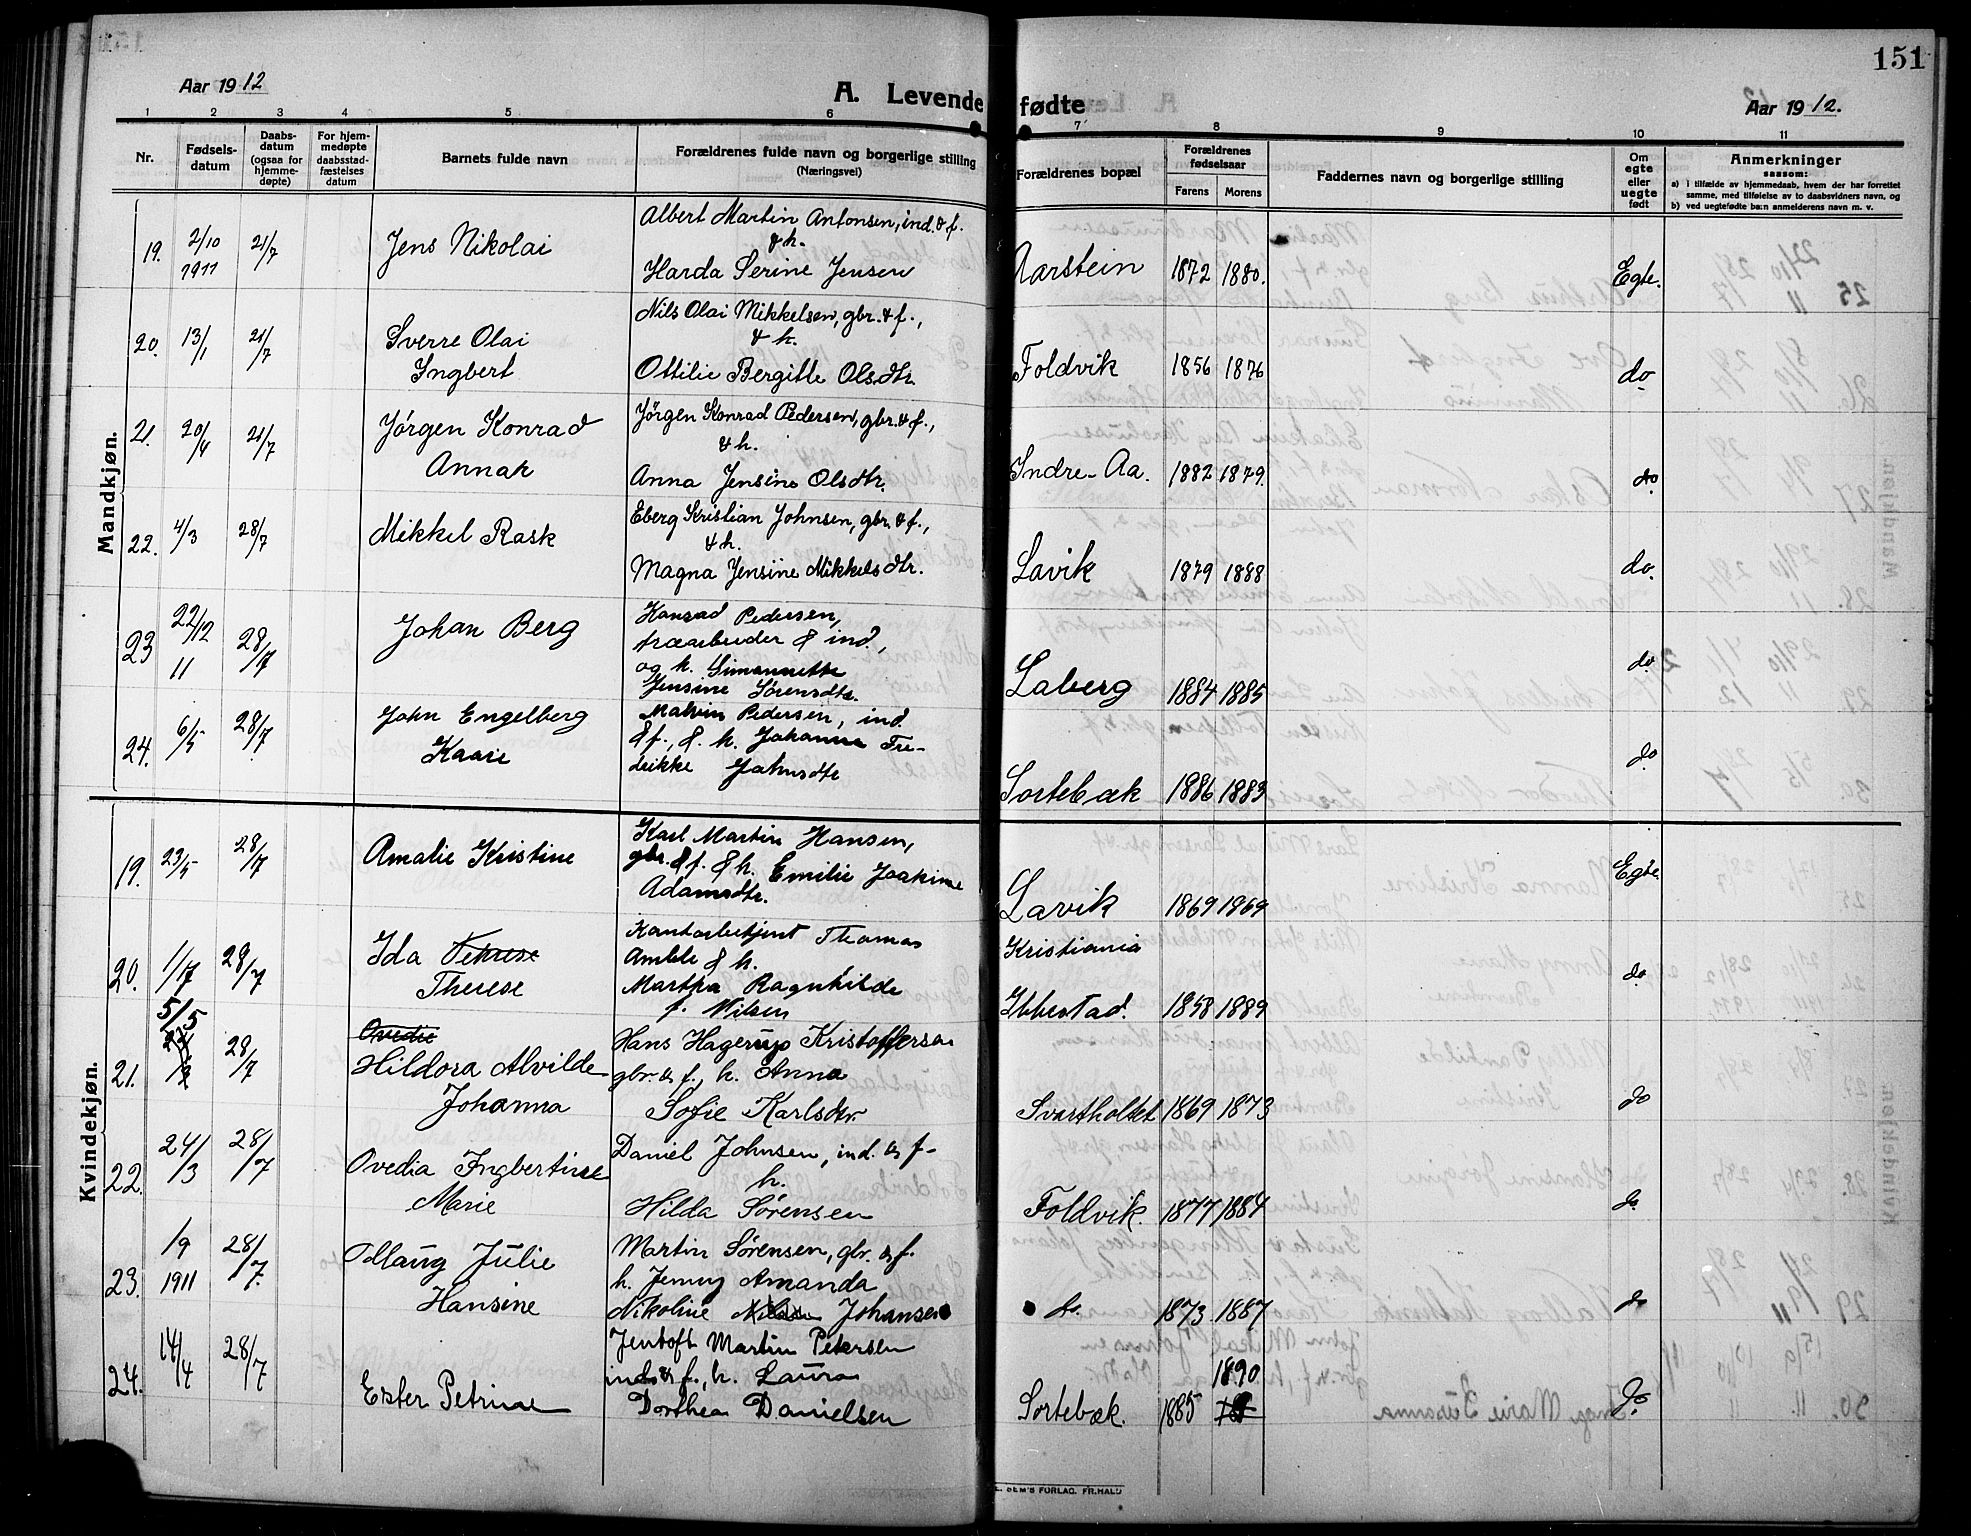 151
Aar 1912
A. Levende fødte
Aar 1912.
1 2 3 4 5 6 7 8 9 10 11
Nr.
Fødsels-
datum
Daabs-
datum
(ogsaa for
hjemme-
døpte)
For hjem-
medøpte
daabsstad-
fæstelses
datum
Barnets fulde navn
Forældrenes fulde navn og borgerlige stilling
(Næringsvei)
Forældrenes bopæl
Forældrenes
fødselsaar
Farens Morens
Faddernes navn og borgerlige stilling
Om
egte
eller
uegte
født
Anmerkninger
saasom:
a) i tilfælde av hjemmedaab, hvem der har forrettet
samme, med tilføielse av to daabsvidners navn, og
b) ved uegtefødte barn anmelderens navn m. v.
Mandkjøn.
19. 2/10 1911 21/7 Jens Nikolai
Albert Martin Antonsen, ind. & f.
& h.
Harda Serine Jensen
Aarstein 1872 1880. Egte.
20. 13/1 21/7 Sverre Olai
Ingbert
Nils Olai Mikkelsen, gbr. & f.,
& h.
Ottilie Bergitte Olsdtr.
Foldvik 1856 1876 do
21. 20/4 21/7 Jørgen Konrad
Annar
Jørgen Konrad Pedersen, gbr. & f.,
& h.
Anna Jensine Olsdtr.
Indre-Aa. 1882 1879. do
22. 4/3 28/7 Mikkel Rask
Eberg Kristian Johnsen, gbr. & f.,
& h.
Magna Jensine Mikkelsdtr.
Lavik 1879 1888 do.
23 22/12 11 28/7 Johan Berg
Konrad Pedersen,
træarbeider & ind.,
og h. Simonette
Jensine Sørensdtr.
Laberg 1884 1885 do
24. 6/5 28/7 John Engelberg
Kaare
Malvin Pedersen, ind.
& f., & h. Johanne Fre-
drikke Johnsdtr
Sortebæk 1886 1883 do
Kvindekjøn.
19. 23/5 28/7 Amalie Kristine
Karl Martin Hansen,
gbr. & f. & h. Emilie Joakime
Adamsdtr.
Lavik 1869 1869 Egte.
20. 1/17 28/7 Ida
Therese
Kontorbetjent Thomas
Amble & h.
Martha Ragnhilde
f. Nilsen
Kristiania
Ibbestad. 1858 1889 do
21. 5/5 28/7 Ovedie
Hildora Alvilde
Johanna
Hans Hagerup Kristoffersen
gbr. & f., h. Anna
Sofie Karlsdtr.
Svartholtet 1869 1873 do
22. 24/3 28/7 Ovedia Ingbertine
Marie
Daniel Johnsen, ind. & f.
h.
Hilda Sørensen
Foldvik. 1877 1884 do
23. 1/9 1911 28/7. Ollaug Julie
Hansine
Martin Sørensen, gbr. & f.
h. Jenny Amanda
Nikoline Johansen
do. 1873 1887 do
24. 14/4 28/7 Ester Petrine
Jentoft Martin Petersen
inds & f., h. Laura
Dorthea Danielsen
Sortebæk. 1885 1890 do
SEM'S FORLAG. FR.HALD